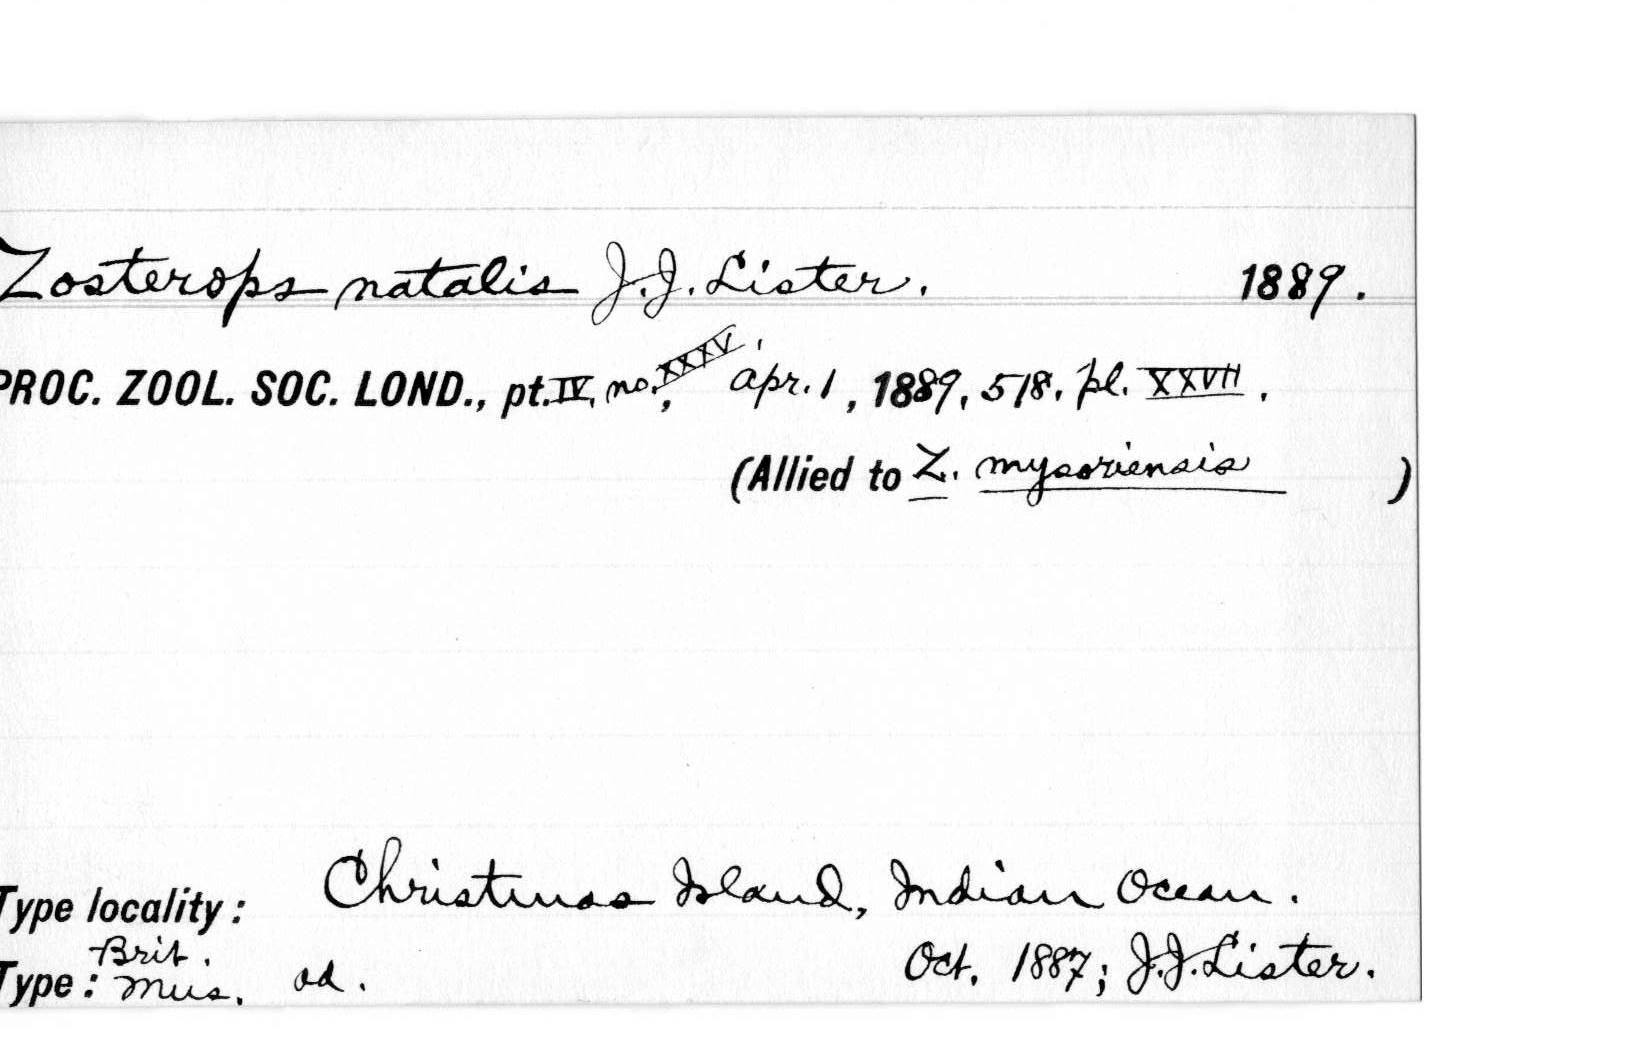 Zosterops natalis J.J. Lister. 1889.
PROC. ZOOL. SOC. LOND., pt. IV, no. XXXV, apr. 1, 1889, 518, pl. XXVII.
(Allied to Z. mysoriensis )
Type locality: Christmas Island, Indian Ocean.
Type: Brit. Mus. ad. Oct. 1887; J.J. Lister.